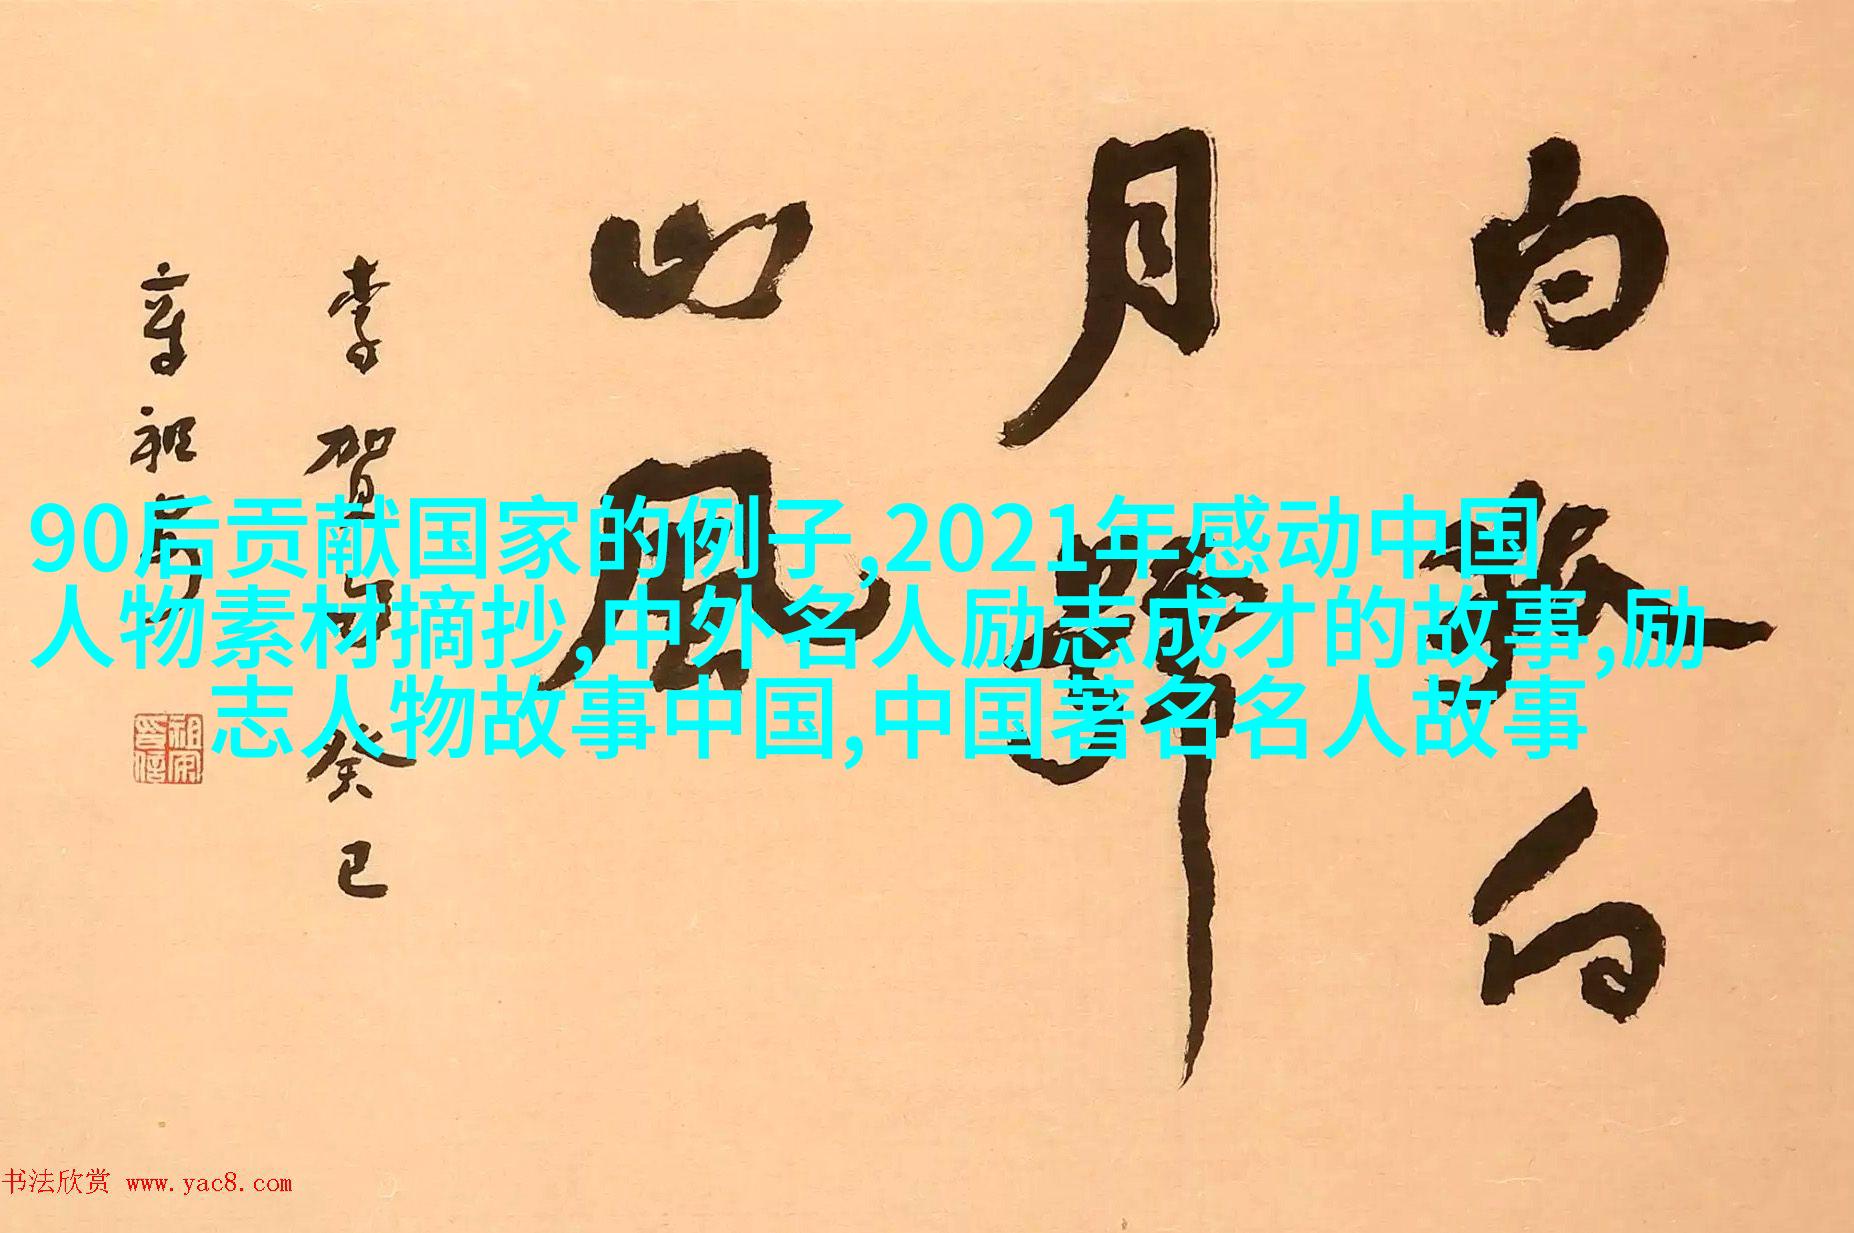 90后贡献国家的例子,2021年感动中国
人物素材摘抄,中外名人励志成才的故事,励
志人物故事中国,中国著名名人故事
月
山風
李賀句 癸巳
章祖安
书法欣赏 www.yac8.com